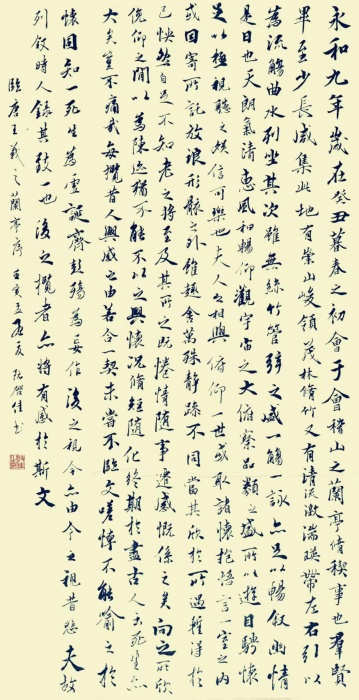 永和九年歲在癸丑暮春之初會于會稽山之蘭亭脩稧事也羣賢
畢至少長咸集此地有崇山峻領茂林脩竹又有清流激湍暎帶左右引以
為流觴曲水列坐其次雖無絲竹管弦之盛一觴一詠亦足以暢敘幽情
是日也天朗氣清惠風和暢仰觀宇宙之大俯察品類之盛所以遊目騁懷
足以極視聽之娛信可樂也夫人之相與俯仰一世或取諸懷抱悟言一室之內
或因寄所託放浪形骸之外雖趣舍萬殊靜躁不同當其欣於所遇暫得於
己怏然自足不知老之將至及其所之既惓情隨事遷感慨係之矣向之所欣
俛仰之間以為陳迹猶不能不以之興懷況脩短隨化終期於盡古人云死生亦
大矣豈不痛哉每攬昔人興感之由若合一契未嘗不臨文嗟悼不能喻之於
懷固知一死生為虛誕齊彭殤為妄作後之視今亦由今之視昔悲夫故
列敘時人錄其致一也後之攬者亦將有感於斯文
臨唐王羲之蘭亭序 壬寅孟夏 佳書